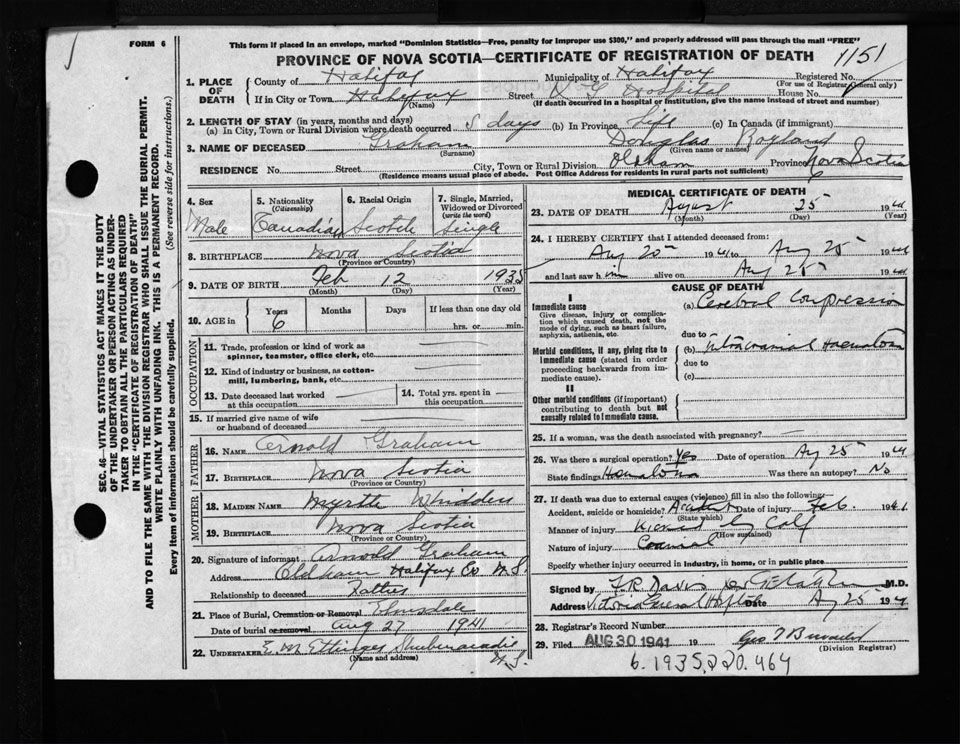 FORM 6
This form if placed in an envelope, marked "Dominion Statistics—Free, penalty for improper use $300," and properly addressed will pass through the mail "FREE"
PROVINCE OF NOVA SCOTIA—CERTIFICATE OF REGISTRATION OF DEATH
1151
1. PLACE OF DEATH
County of Halifax Municipality of Halifax Registered No.
(For use of Registrar General only)
If in City or Town Halifax Street V G Hospital House No.
(Name) (If death occurred in a hospital or institution, give the name instead of street and number)
2. LENGTH OF STAY (in years, months and days)
(a) In City, Town or Rural Division where death occurred 5 days (b) In Province Life (c) In Canada (if immigrant)
3. NAME OF DECEASED Graham Douglas
(Surname) (Given name or names)
RESIDENCE No. Street City, Town or Rural Division Oldham Province Nova Scotia
(Residence means usual place of abode. Post Office Address for residents in rural parts not sufficient)
6
4. Sex
Male
5. Nationality (Citizenship)
Canadian
6. Racial Origin
Scotch
7. Single, Married, Widowed or Divorced (write the word)
Single
8. BIRTHPLACE Nova Scotia
(Province or Country)
9. DATE OF BIRTH Feb 12 1935
(Month) (Day) (Year)
10. AGE in Years Months Days If less than one day old
6 hrs. or min.
OCCUPATION
11. Trade, profession or kind of work as spinner, teamster, office clerk, etc.
12. Kind of industry or business, as cotton-mill, lumbering, bank, etc.
13. Date deceased last worked at this occupation
14. Total yrs. spent in this occupation
15. If married give name of wife or husband of deceased
FATHER
16. NAME Arnold Graham
17. BIRTHPLACE Nova Scotia
(Province or Country)
MOTHER
18. MAIDEN NAME Myrtle Whidden
19. BIRTHPLACE Nova Scotia
(Province or Country)
20. Signature of informant Arnold Graham
Address Oldham Halifax Co N.S.
Relationship to deceased Father
21. Place of Burial, Cremation or Removal Elmsdale
Date of burial or removal Aug 27 1941
22. UNDERTAKER E. M. Ettinger Shubenacadie
(Name and address) N.S.
MEDICAL CERTIFICATE OF DEATH
23. DATE OF DEATH August 25 1941
(Month) (Day) (Year)
24. I HEREBY CERTIFY that I attended deceased from:
Aug 20 1941 to Aug 25 1941
and last saw him alive on Aug 25 1941
CAUSE OF DEATH
I
Immediate cause
Give disease, injury or complication which caused death, not the mode of dying, such as heart failure, asphyxia, asthenia, etc.
(a) Cerebral Compression
due to
Morbid conditions, if any, giving rise to immediate cause (stated in order proceeding backwards from immediate cause).
(b) Intracranial Haematoma
due to
(c)
II
Other morbid conditions (if important) contributing to death but not causally related to immediate cause.
25. If a woman, was the death associated with pregnancy?
26. Was there a surgical operation? Yes Date of operation Aug 25 1941
State findings Hematoma Was there an autopsy? No
27. If death was due to external causes (violence) fill in also the following:
Accident, suicide or homicide? Accident Date of injury Feb. 1941
(State which)
Manner of injury Kicked by Calf
(How sustained)
Nature of injury Cranial
Specify whether injury occurred in industry, in home, or in public place
Signed by F.R. Davis M.D.
Address Victoria General Hospital Date Aug 25 1941
28. Registrar's Record Number
29. Filed AUG 30 1941 19
(Division Registrar)
6.1935,220.464
SEC. 46—VITAL STATISTICS ACT MAKES IT THE DUTY
OF THE UNDERTAKER OR PERSON ACTING AS UNDER-
TAKER TO OBTAIN ALL THE PARTICULARS REQUIRED
IN THE "CERTIFICATE OF REGISTRATION OF DEATH"
AND TO FILE THE SAME WITH THE DIVISION REGISTRAR WHO SHALL ISSUE THE BURIAL PERMIT.
WRITE PLAINLY WITH UNFADING INK. THIS IS A PERMANENT RECORD.
Every item of information should be carefully supplied. (See reverse side for instructions.)